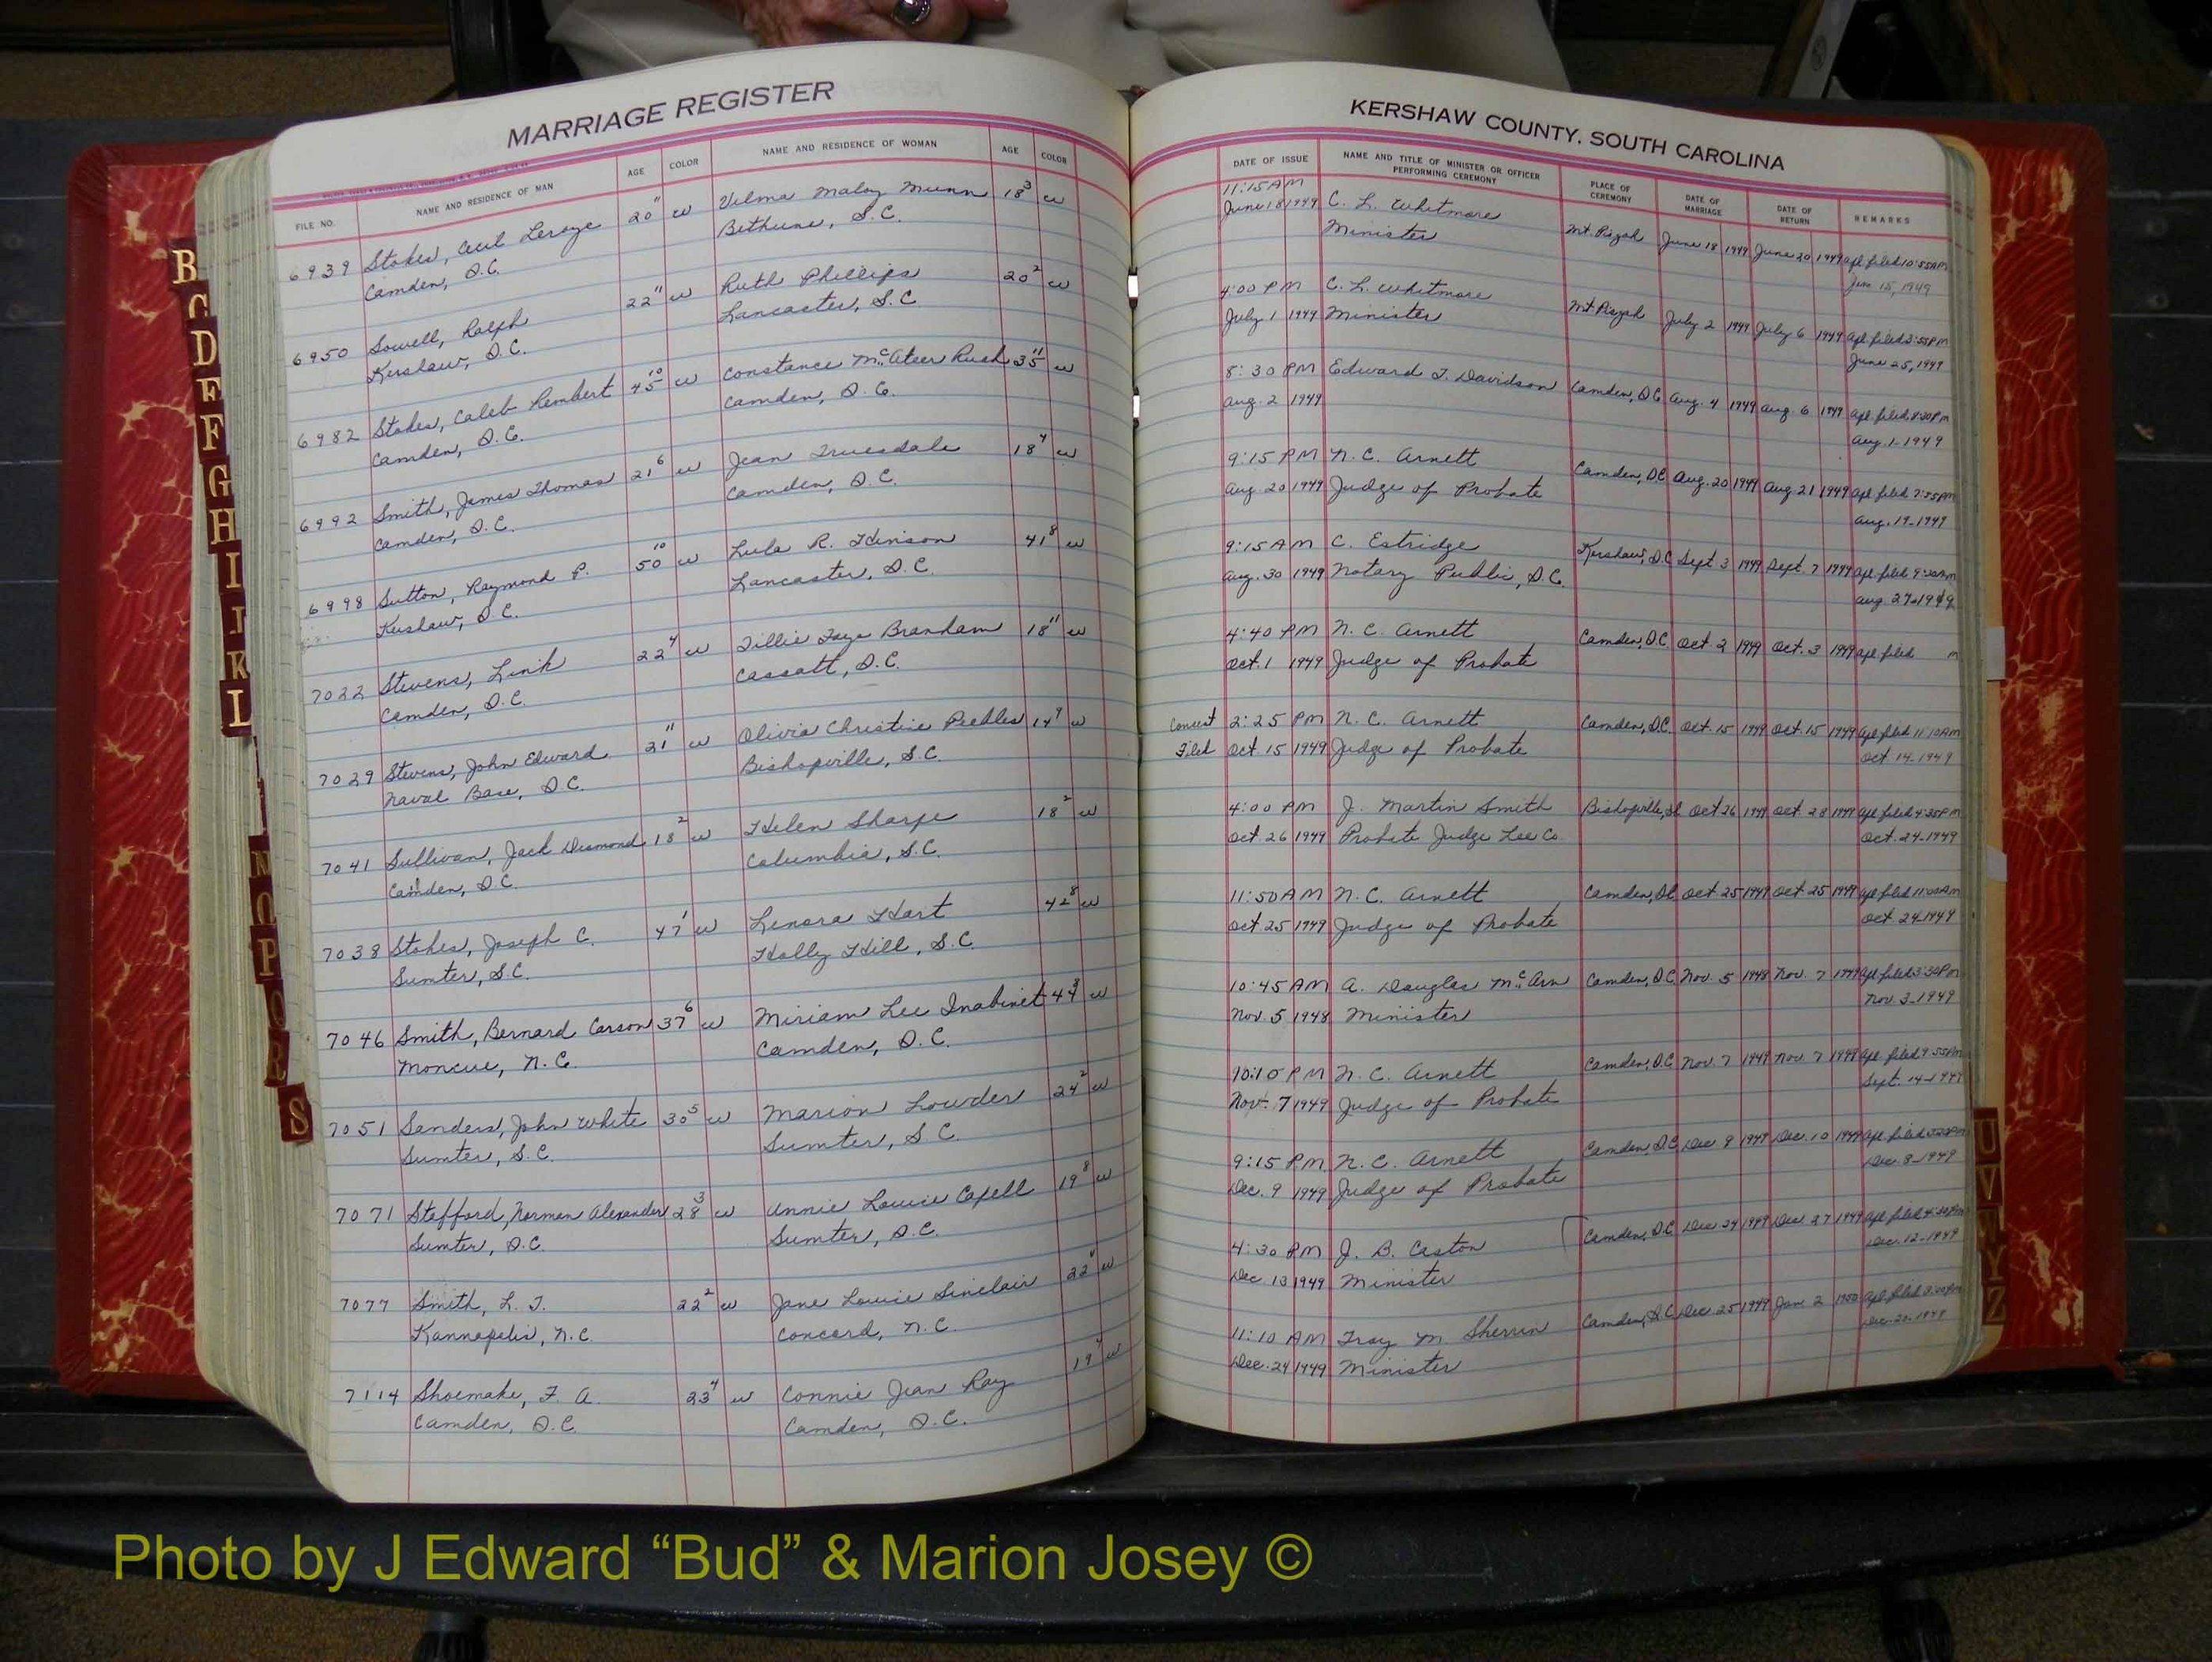 MARRIAGE REGISTER
FILE NO. NAME AND RESIDENCE OF MAN AGE COLOR NAME AND RESIDENCE OF WOMAN AGE COLOR
6939 Stokes, Cecil Leroye 20 11 w Velma Maloy Munn 18 3 w
Camden, S.C. Bethune, S.C.
6950 Sowell, Ralph 22 11 w Ruth Phillips 20 2 w
Kershaw, S.C. Lancaster, S.C
6982 Stokes, Caleb Rembert 45 10 w Constance McAteer Rush 35 11 w
Camden, S.C. Camden, S.C.
6992 Smith, James Thomas 21 6 w Jean Truesdale 18 4 w
Camden, S.C. Camden, S.C.
6998 Sutton, Raymond P. 50 10 w Lula R. Hinson 41 8 w
Kershaw, S.C. Lancaster, S.C.
7022 Stevens, Link 22 4 w Tillie Faye Branham 18 11 w
Camden, S.C. Cassatt, S.C.
7029 Stevens, John Edward 21 11 w Olivia Christine Peebles w
Naval Base, S.C. Bishopville, S.C.
7041 Sullivan, Jack Desmond 18 2 w Helen Sharpe 18 2 w
Camden, S.C. Columbia, S.C.
7038 Stokes, Joseph C. 47 1 w Lenora Hart 42 8 w
Sumter, S.C. Holly Hill, S.C
7046 Smith, Bernard Carson 37 6 w Miriam Lee Inabinet w
Moncue, N.C. Camden, S.C.
7051 Sanders, John White 30 5 w Marion Lowder 24 2 w
Sumter, S.C. Sumter, S.C
7071 Stafford, Norman Alexander 28 3 w Annie Louise Capell 19 8 w
Sumter, S.C. Sumter, S.C.
7077 Smith, L. T. 22 2 w Jane Louise Sinclair 22 w
Kannapolis, N.C. Concord, N.C.
7114 Shoemake, F. A. 23 4 w Connie Jean Ray 19 w
Camden, S.C Camden, S.C.
KERSHAW COUNTY, SOUTH CAROLINA
DATE OF ISSUE NAME AND TITLE OF MINISTER OR OFFICER PERFORMING CEREMONY PLACE OF CEREMONY DATE OF MARRIAGE DATE OF RETURN REMARKS
11:15 AM C. L. Whitmore Mt. Pisgah June 18 1949 June 20 1949 apl. filed 10:55AM
June 18 1949 Minister June 15, 1949
4:00 PM C. L. Whitmore Mt Pisgah July 2 1949 July 6 1949 apl. filed 3:55PM
July 1 1949 Minister June 25, 1949
8:30 PM Edward T. Davidson Camden, SC Aug. 4 1949 Aug. 6 1949 apl. filed 8:30PM
Aug. 2 1949 Aug. 1-1949
9:15 PM N. C. Arnett Camden, SC Aug. 20 1949 Aug 21 1949 apl. filed 7:55PM
Aug. 20 1949 Judge of Probate Aug. 19-1949
9:15 AM C. Estridge Kershaw, S.C Sept 3 1949 Sept. 7 1949 apl. filed
Aug. 30 1949 Notary Public, S.C. Aug. 27-1949
4:40 PM N. C. Arnett Camden, S.C. Oct 2 1949 Oct. 3 1949 apl. filed M
Oct. 1 1949 Judge of Probate
Consent 2:25 PM N. C. Arnett Camden, S.C. Oct. 15 1949 Oct. 15 1949 apl. filed 11:10AM
Filed Oct 15 1949 Judge of Probate Oct. 14-1949
4:00 PM J. Martin Smith Bishopville, Oct 26 1949 Oct. 28 1949 apl. filed 4:35PM
Oct. 26 1949 Probate Judge Lee Co. Oct. 24-1949
11:50 AM N. C. Arnett Camden, SC Oct 25 1949 Oct 25 1949 apl. filed 11:00AM
Oct 25 1949 Judge of Probate Oct 24-1949
10:45 AM A. Douglas McArn Camden, S.C. Nov. 5 1948 Nov. 7 1949 apl. filed 3:30PM
Nov. 5 1948 Minister Nov. 3-1949
10:10 PM N. C. Arnett Camden, S.C Nov. 7 1949 Nov. 7 1949 apl. filed 9:55AM
Nov. 7 1949 Judge of Probate Sept. 14-1949
9:15 PM N. C. Arnett Camden, S.C Dec. 9 1949 Dec. 10 1949 apl. filed
Dec. 9 1949 Judge of Probate Dec. 8-1949
4:30 PM J. B. Caston Camden, S.C Dec 24 1949 Dec. 27 1949 apl. filed 4:30PM
Dec 13 1949 Minister Dec. 12-1949
11:10 AM Troy M Sherrin Camden, S.C Dec. 25 1949 Jan 2 1950 apl. filed
Dec. 24 1949 Minister Dec. 20-1949
B
C
D
E
F
G
H
I
J
K
L
N
O
P
Q
R
S
U
V
W
Y
Z
Photo by J Edward “Bud” & Marion Josey ©